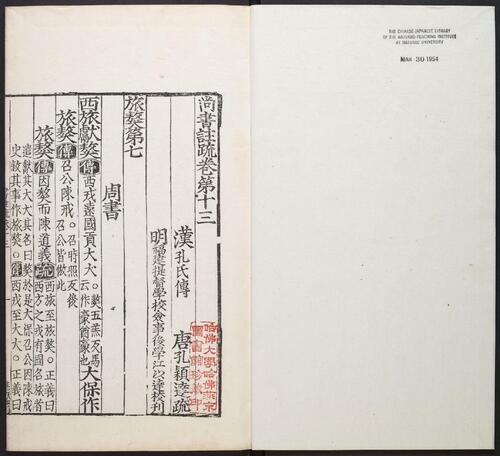 THE CHINESE-JAPANESE LIBRARY
OF THE HARVARD-YENCHING INSTITUTE
AT HARVARD UNIVERSITY
MAR 30 1954
尚書註疏卷第十三
漢孔氏傳 唐孔穎達疏
明福建提督學校僉事後學江以達校刊
旅獒第七
周書
西旅獻獒傳西戎遠國貢大犬。獒五羔反馬云作豪酋豪也大保作
旅獒傳召公陳戒。召時照反後召公皆倣此
旅獒傳因獒而陳道義疏西旅至旅獒。正義曰西方之戎有國名旅者
遣獻其大犬其名曰獒於是大保召公因陳戒
史敘其事作旅獒。傳西戎至大犬。正義曰
哈佛大學哈佛燕京
圖書館珍藏印